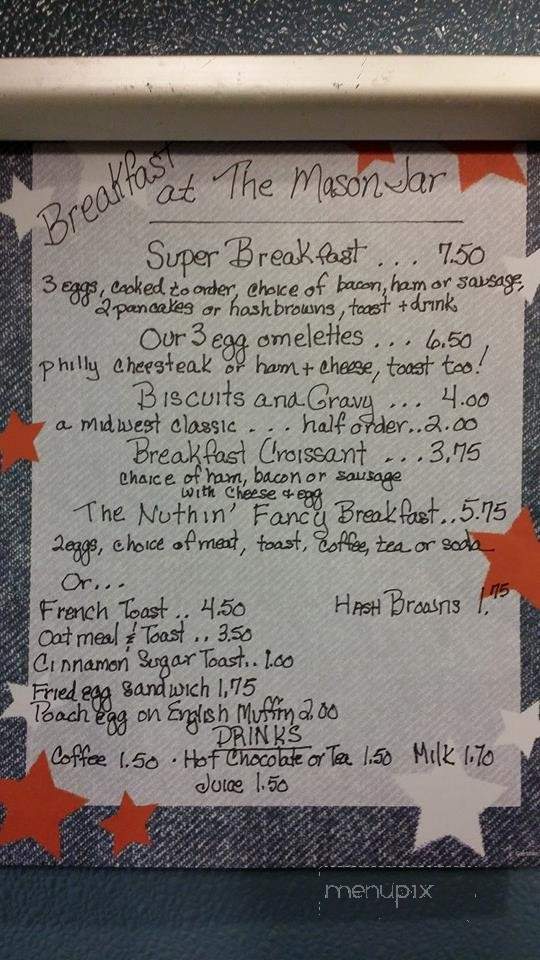 Breakfast at The Mason Jar
Super Breakfast ... 7.50
3 eggs, cooked to order, choice of bacon, ham or sausage,
2 pancakes or hashbrowns, toast + drink
Our 3 egg omelettes ... 6.50
philly cheesteak or ham + cheese, toast too!
Biscuits and Gravy ... 4.00
a midwest classic ... half order..2.00
Breakfast Croissant ... 3.75
choice of ham, bacon or sausage
with cheese & egg
The Nuthin' Fancy Breakfast..5.75
2 eggs, choice of meat, toast, coffee, tea or soda
Or...
French Toast .. 4.50 Hash Browns 1.75
Oatmeal & Toast .. 3.50
Cinnamon Sugar Toast.. 1.00
Fried egg Sandwich 1.75
Poach egg on English Muffin 2.00
DRINKS
Coffee 1.50 · Hot Chocolate or Tea 1.50 Milk 1.70
Juice 1.50
menupix